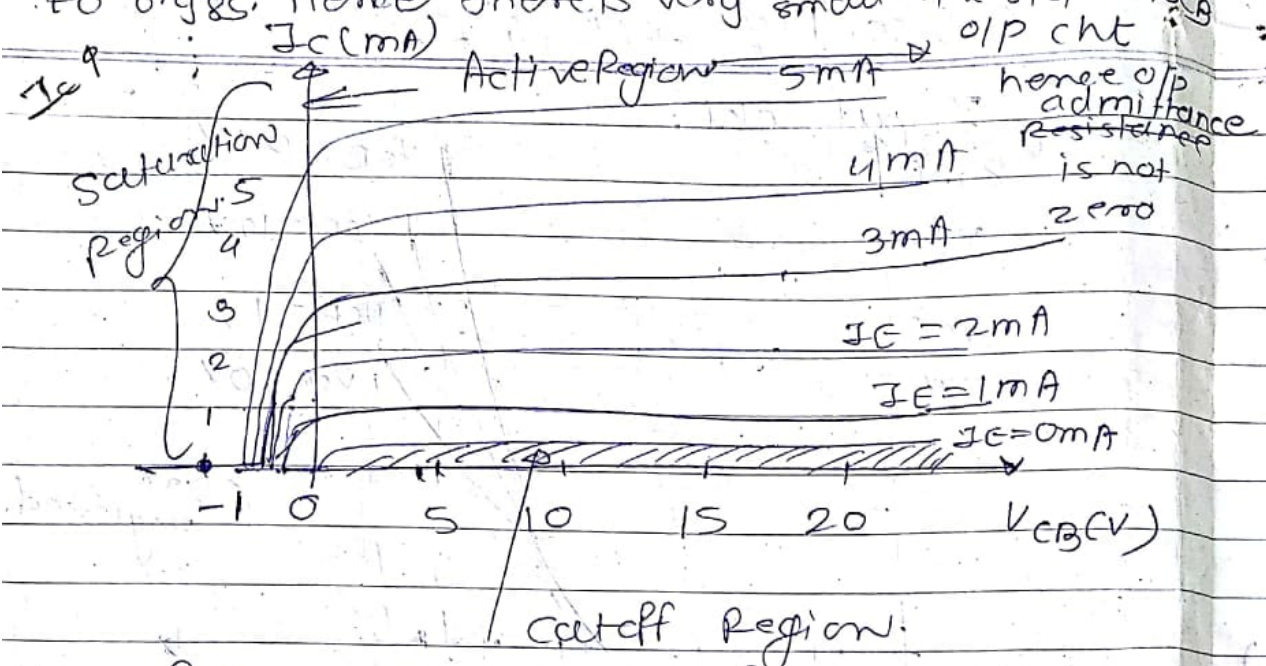 to 0.985. Hence there is very small
Ic (mA)
o/p cht
Active Region
5mA
hence o/p
admittance
Resistance
is not
zero
Saturation
Region
4mA
3mA
IE = 2mA
IE = 1mA
IE = 0mA
5
4
3
2
1
-1 0 5 10 15 20 VCB (V)
Cutoff Region.